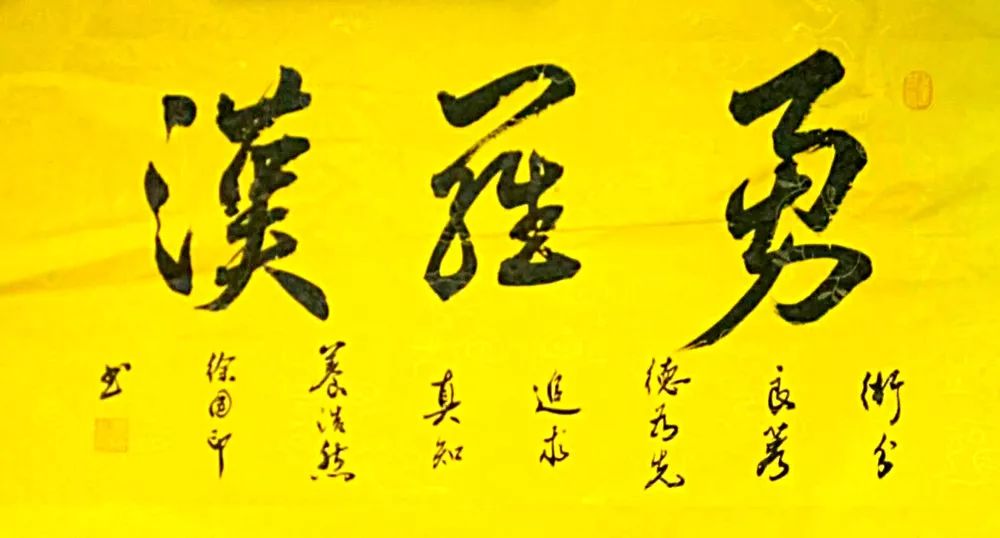 勇羅漢
術分
良莠
德为先
追求
真知
养浩然
徐国印
书